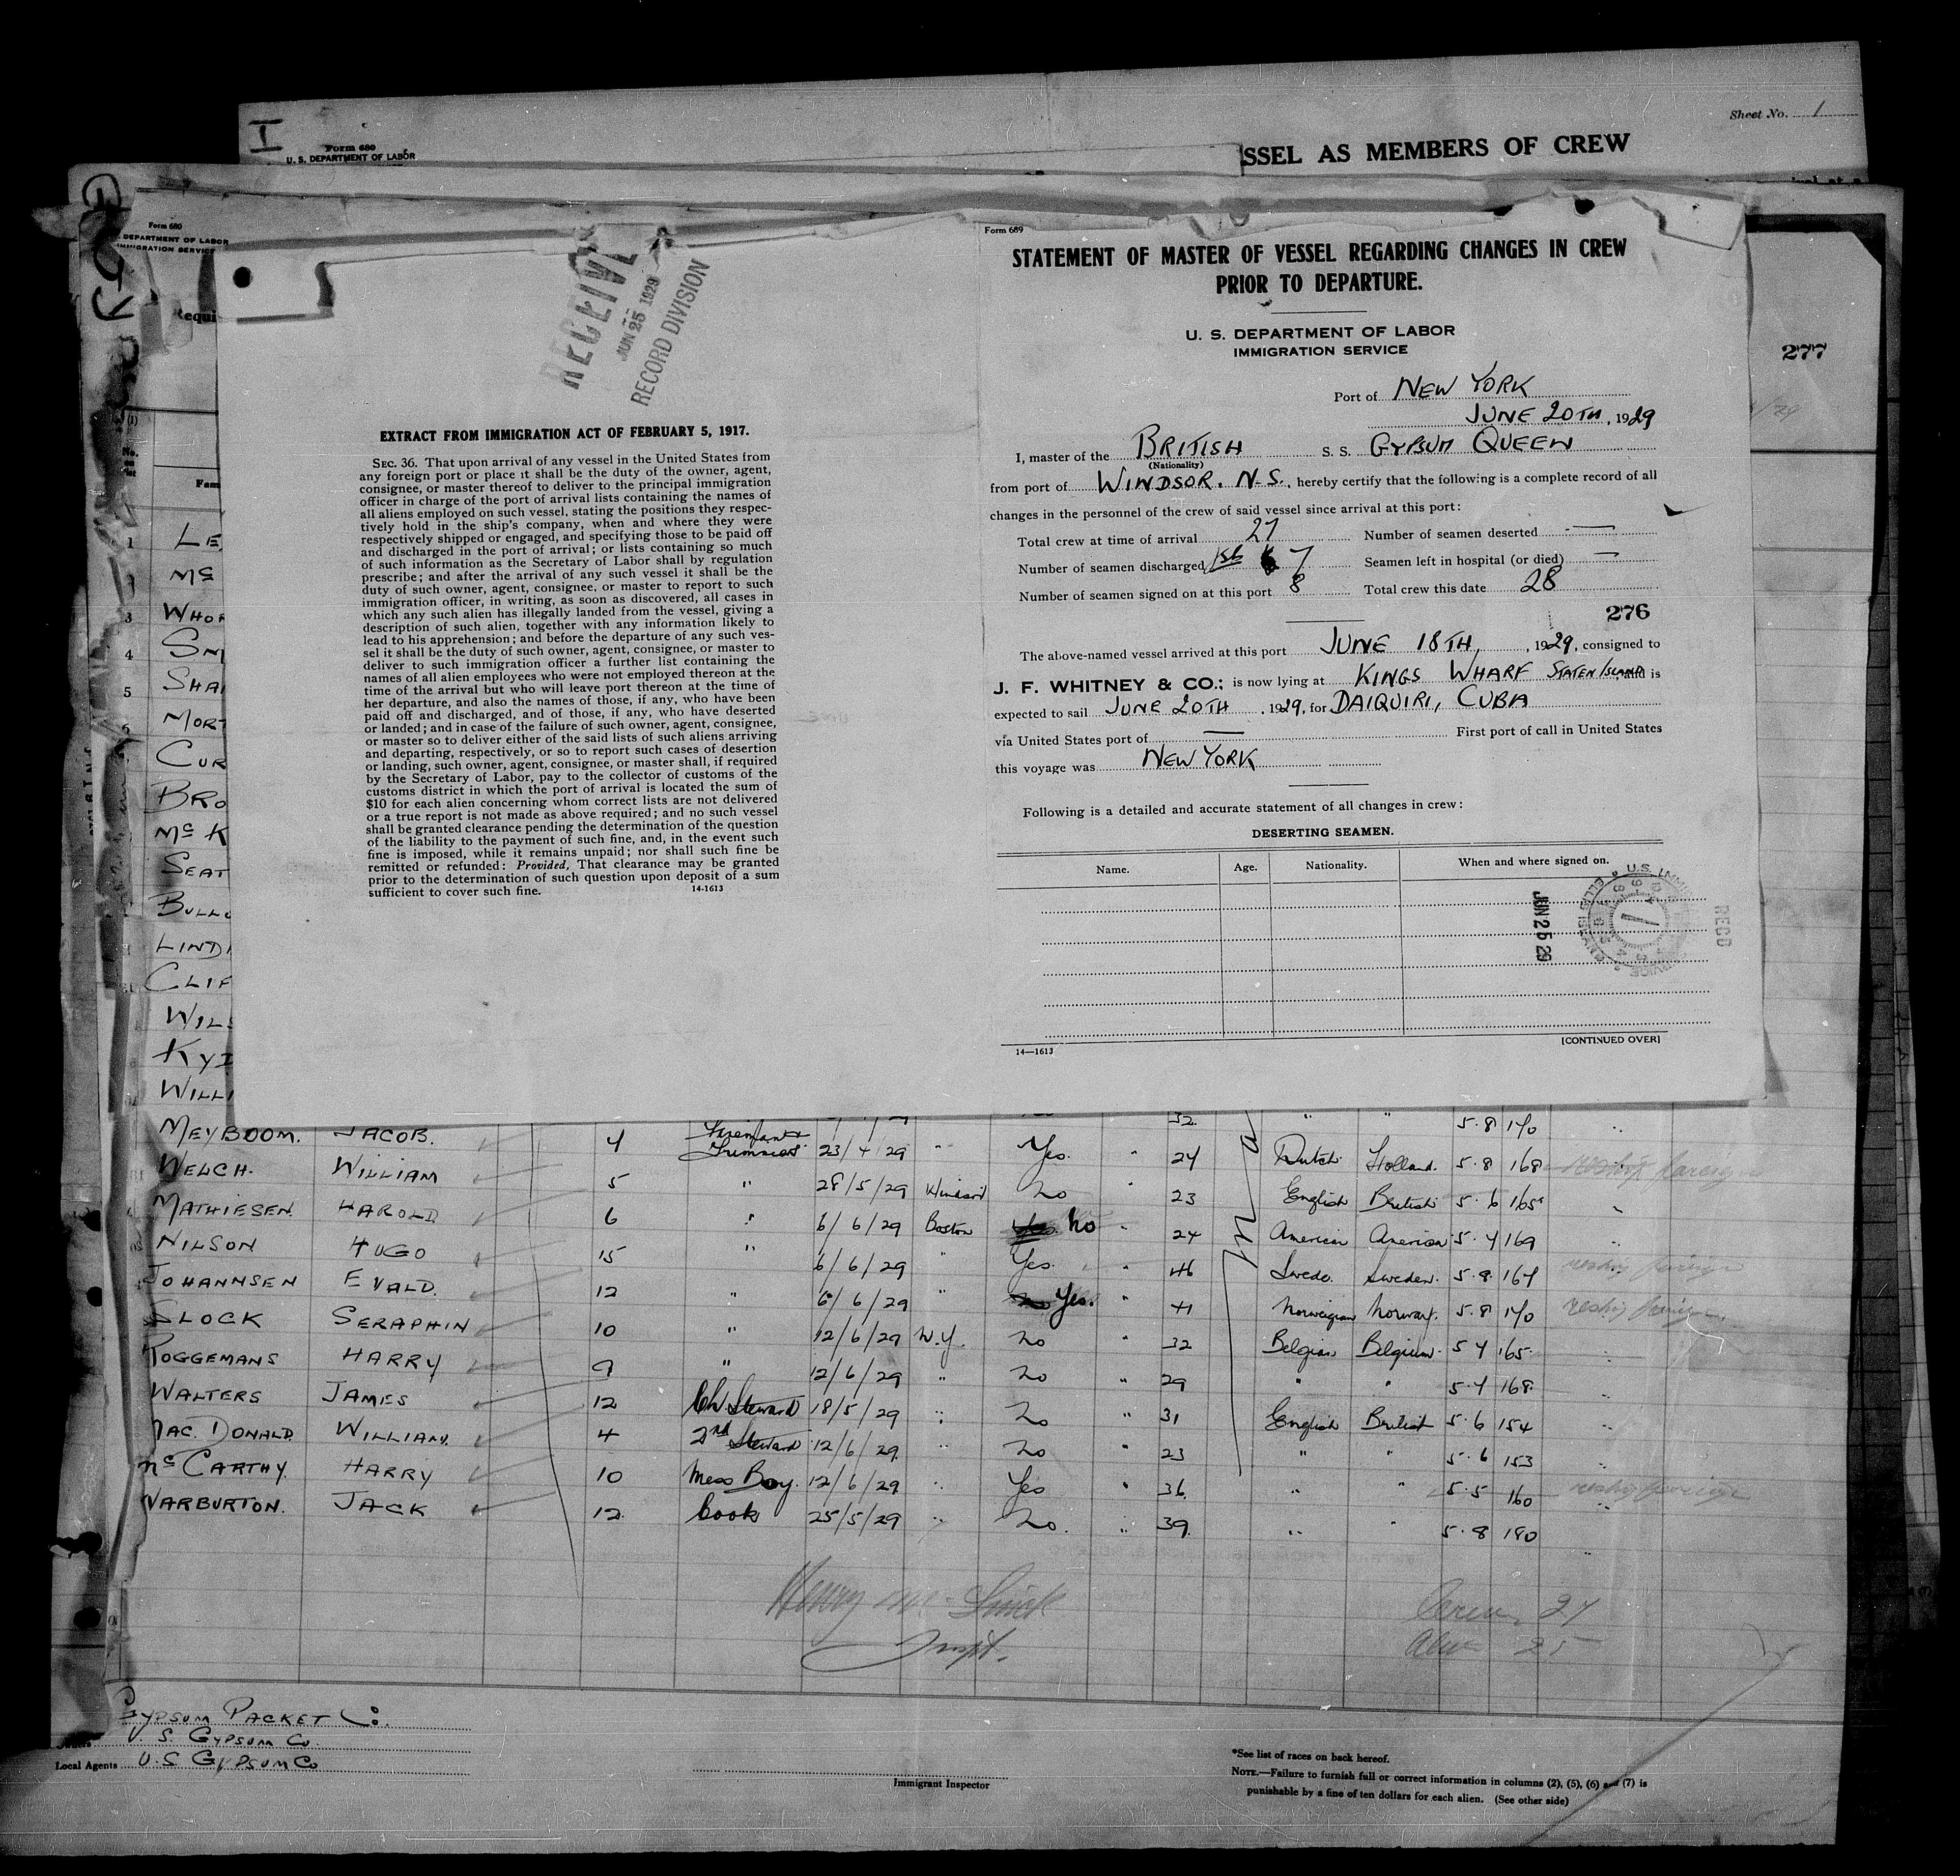 Sheet No. 1
I
Form 680
U. S. DEPARTMENT OF LABOR
SSEL AS MEMBERS OF CREW
Form 680
DEPARTMENT OF LABOR
IMMIGRATION SERVICE
Requi
277
No.
Fam
RECEIVE
JUN 25 1929
RECORD DIVISION
EXTRACT FROM IMMIGRATION ACT OF FEBRUARY 5, 1917.
SEC. 36. That upon arrival of any vessel in the United States from
any foreign port or place it shall be the duty of the owner, agent,
consignee, or master thereof to deliver to the principal immigration
officer in charge of the port of arrival lists containing the names of
all aliens employed on such vessel, stating the positions they respec-
tively hold in the ship's company, when and where they were
respectively shipped or engaged, and specifying those to be paid off
and discharged in the port of arrival; or lists containing so much
of such information as the Secretary of Labor shall by regulation
prescribe; and after the arrival of any such vessel it shall be the
duty of such owner, agent, consignee, or master to report to such
immigration officer, in writing, as soon as discovered, all cases in
which any such alien has illegally landed from the vessel, giving a
description of such alien, together with any information likely to
lead to his apprehension; and before the departure of any such ves-
sel it shall be the duty of such owner, agent, consignee, or master to
deliver to such immigration officer a further list containing the
names of all alien employees who were not employed thereon at the
time of the arrival but who will leave port thereon at the time of
her departure, and also the names of those, if any, who have been
paid off and discharged, and of those, if any, who have deserted
or landed; and in case of the failure of such owner, agent, consignee,
or master so to deliver either of the said lists of such aliens arriving
and departing, respectively, or so to report such cases of desertion
or landing, such owner, agent, consignee, or master shall, if required
by the Secretary of Labor, pay to the collector of customs of the
customs district in which the port of arrival is located the sum of
$10 for each alien concerning whom correct lists are not delivered
or a true report is not made as above required; and no such vessel
shall be granted clearance pending the determination of the question
of the liability to the payment of such fine, and, in the event such
fine is imposed, while it remains unpaid; nor shall such fine be
remitted or refunded: Provided, That clearance may be granted
prior to the determination of such question upon deposit of a sum
sufficient to cover such fine. 14-1613
Form 689
STATEMENT OF MASTER OF VESSEL REGARDING CHANGES IN CREW
PRIOR TO DEPARTURE.
U. S. DEPARTMENT OF LABOR
IMMIGRATION SERVICE
Port of NEW YORK
JUNE 20TH, 1929
I, master of the BRITISH S. S. GYPSUM QUEEN
(Nationality)
from port of WINDSOR. N.S., hereby certify that the following is a complete record of all
changes in the personnel of the crew of said vessel since arrival at this port:
Total crew at time of arrival 27 Number of seamen deserted —
Number of seamen discharged 7 Seamen left in hospital (or died) —
Number of seamen signed on at this port 8 Total crew this date 28
276
The above-named vessel arrived at this port JUNE 18TH, 1929, consigned to
J. F. WHITNEY & CO.; is now lying at KINGS WHARF STATEN ISLAND, and is
expected to sail JUNE 20TH, 1929, for DAIQUIRI, CUBA
via United States port of — First port of call in United States
this voyage was NEW YORK
Following is a detailed and accurate statement of all changes in crew:
DESERTING SEAMEN.
Name. Age. Nationality. When and where signed on.
JUN 25 29
RECD
14—1613 [CONTINUED OVER]
1 LE
Mc
3 WHOR
4 SM
5 SHA
6 MORT
CUR
BRO
Mc K
SEAT
BULLO
LIND
CLIF
WILS
KYI
WILLI
32 " " 5.8 170
MEYBOOM. JACOB. 4 Fireman & Trimmer 23/4/29 " Yes. " 24 Dutch Holland. 5.8 168
WELCH. WILLIAM 5 " 28/5/29 Windsor No " 23 English British 5.6 165
MATHIESEN. HAROLD 6 " 6/6/29 Boston No " 24 American American 5.4 169
NILSON HUGO 15 " 6/6/29 " Yes. " 46 Swede. Sweden. 5.8 167
JOHANNSEN EVALD. 12 " 6/6/29 " Yes. " 41 Norwegian Norway. 5.8 170
SLOCK SERAPHIN 10 " 12/6/29 N.Y. No " 32 Belgian Belgium. 5 4 165
ROGGEMANS HARRY 9 " 12/6/29 " No " 29 " " 5.4 168
WALTERS JAMES 12 Ch Steward 18/5/29 " No " 31 English British 5.6 154
MAC. DONALD WILLIAM. 4 2nd Steward 12/6/29 " No " 23 " " 5.6 153
Mc CARTHY. HARRY 10 Mess Boy. 12/6/29 " Yes " 36. " " 5.5 160
WARBURTON. JACK 12 Cook 25/5/29 " No. " 39. " " 5.8 180
Crew 27
Alien 25
GYPSUM PACKET Co.
U. S. GYPSUM Co.
Local Agents U.S GYPSUM Co
Immigrant Inspector
*See list of races on back hereof.
NOTE.—Failure to furnish full or correct information in columns (2), (5), (6) and (7) is
punishable by a fine of ten dollars for each alien. (See other side)